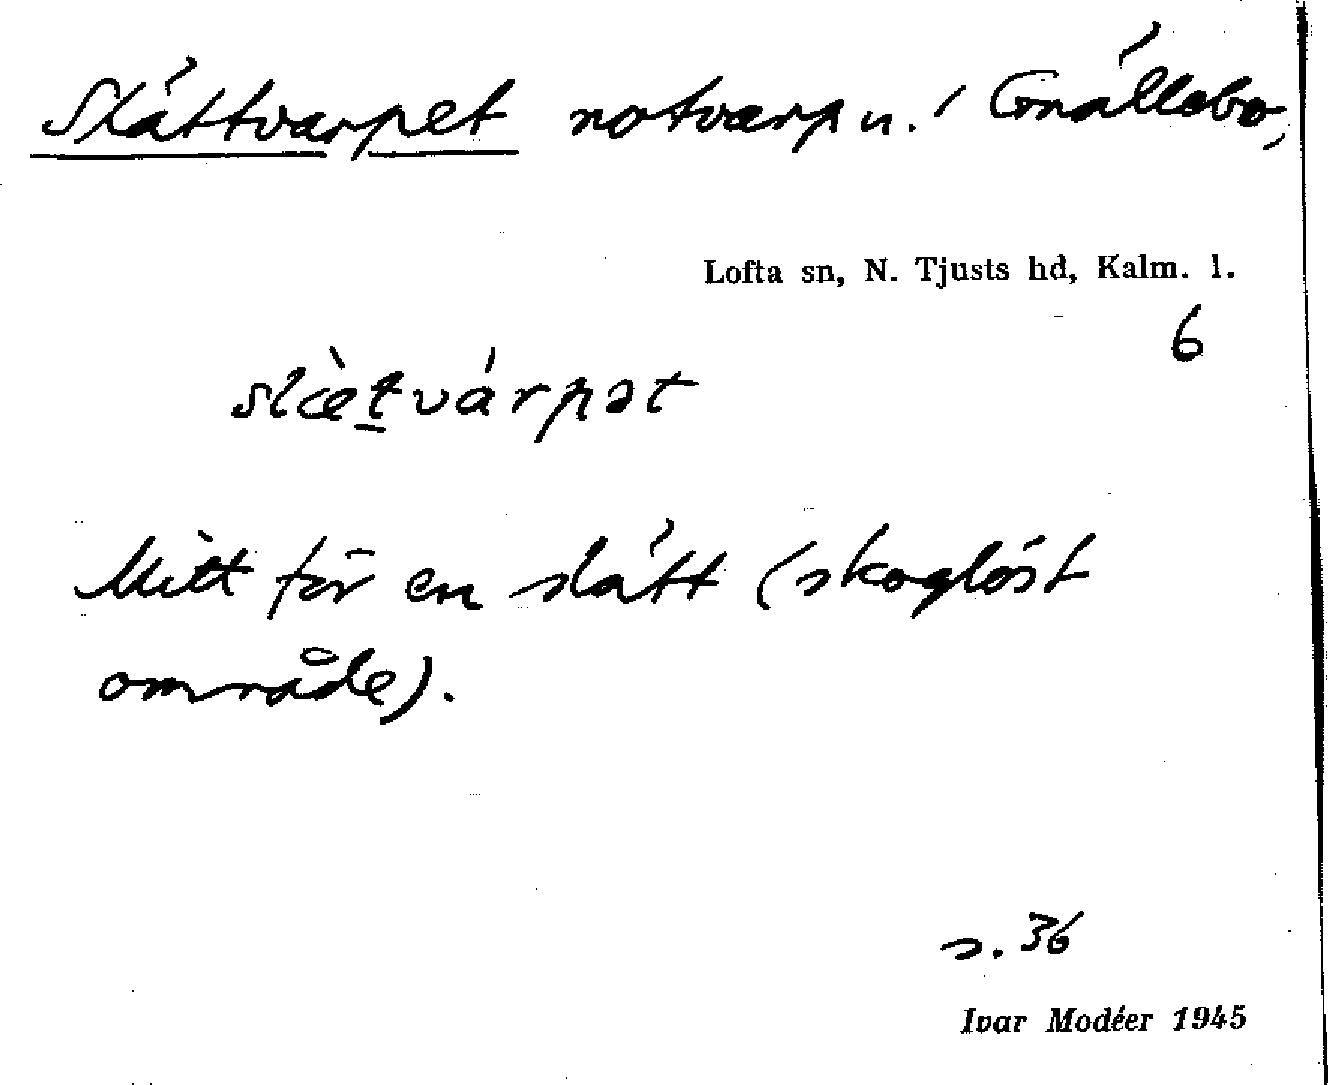 Slättvarpet notvarp n. i Gnällebo,
Lofta sn, N. Tjusts hd, Kalm. l.
6
slæ̀tvárpət
Mitt för en slätt (skoglöst
område).
s. 36
Ivar Modéer 1945